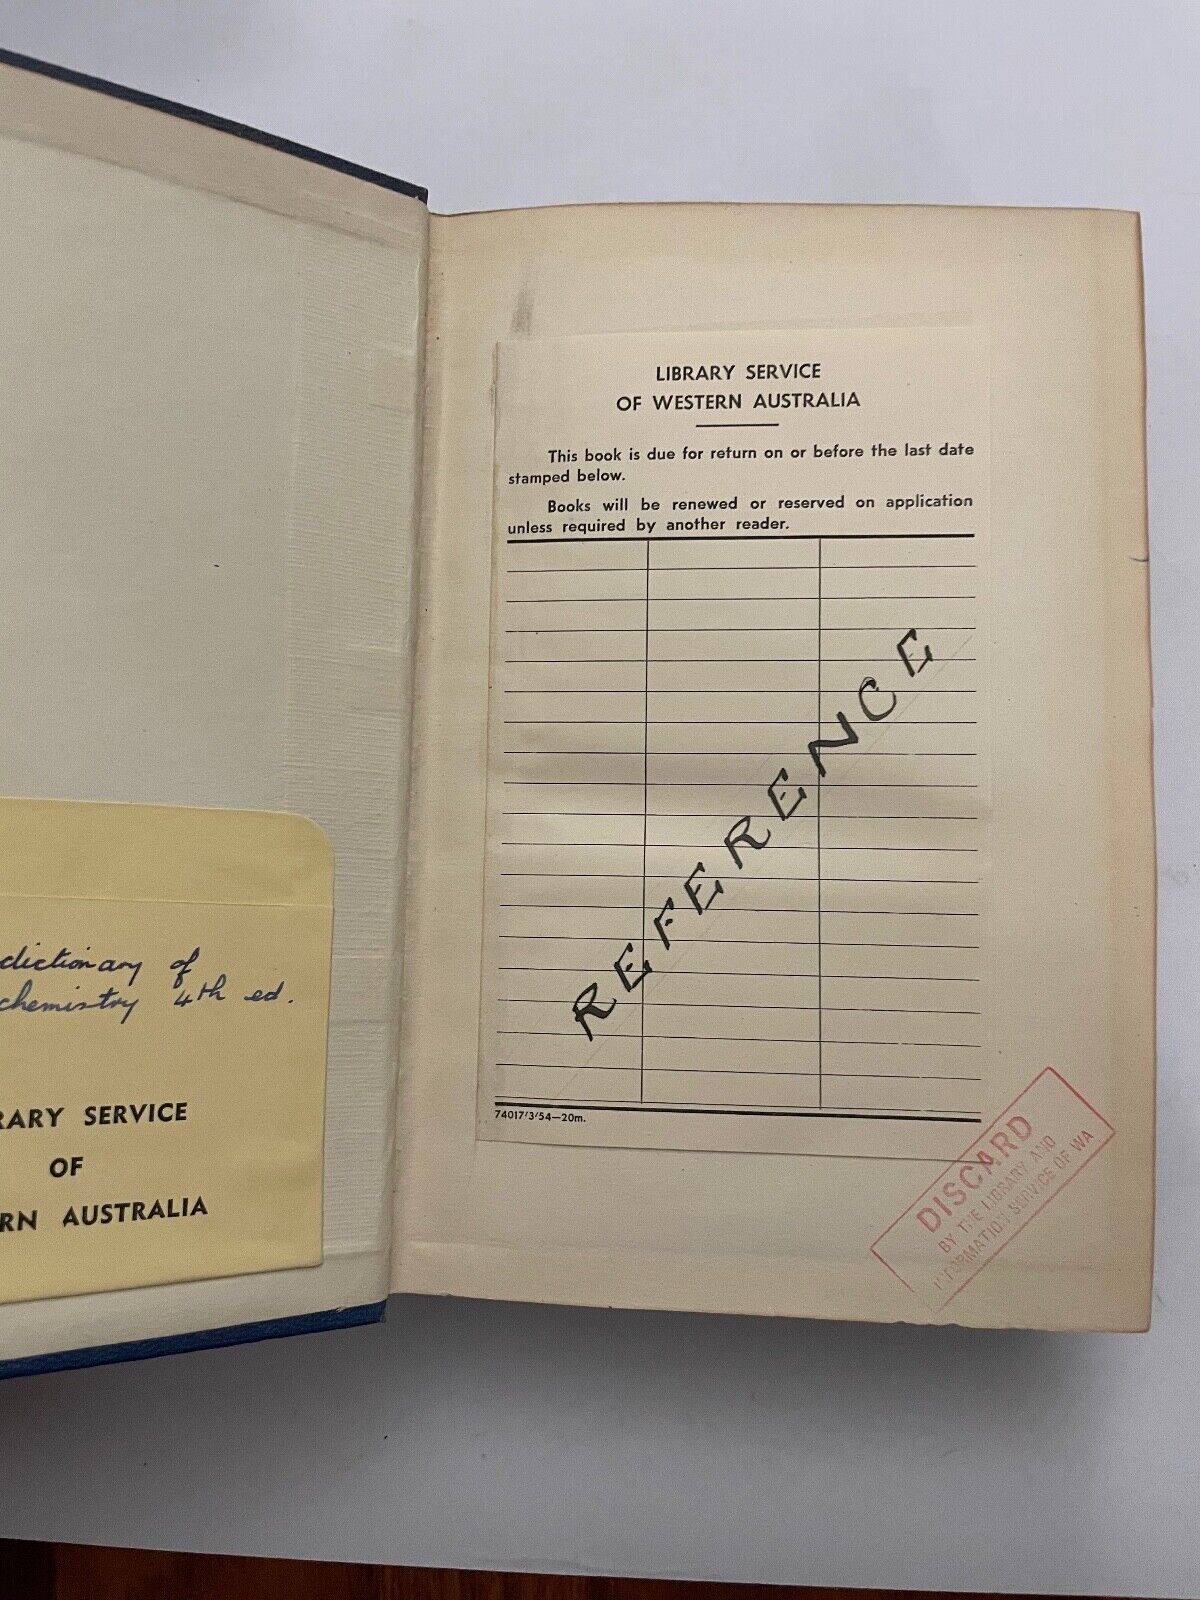 dictionary of
chemistry 4th ed.
RARY SERVICE
OF
RN AUSTRALIA
LIBRARY SERVICE
OF WESTERN AUSTRALIA
This book is due for return on or before the last date
stamped below.
Books will be renewed or reserved on application
unless required by another reader.
REFERENCE
74017/3/54—20m.
DISCARD
BY THE LIBRARY AND
INFORMATION SERVICE OF WA